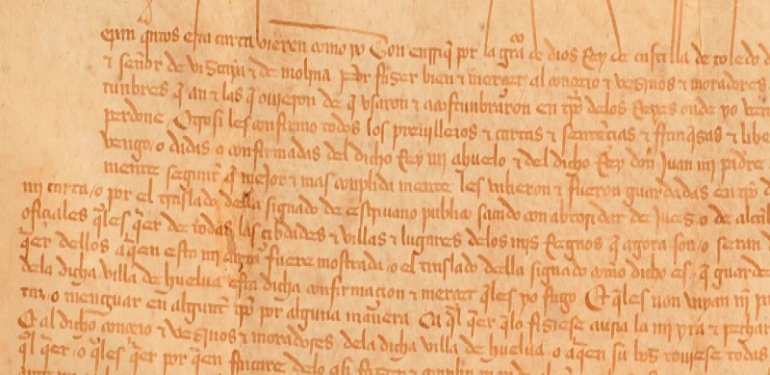 epan quantos esta carta vieren como yo Don enrriq por la gra de dios Rey de castilla de toledo d
& señor de viscaya & de molina Por faser bien & merçet al conçejo & vesjnos & moradores
tunbres q an & las q ouyeron de q vsaron & acostunbraron en tpo delos Reyes onde yo ven
perdone Otrosi les confirmo todos los preuillejos & cartas & sentençias & franqsas & libe
vengo / o dadas o confirmadas del dicho Rey mi ahuelo & del dicho Rey don Juan mi padre
mente segunt q mejor & mas conplida mente les valieron & fueron guardadas en tpo d
mi carta / o por el traslado della signado de escriuano publico sacado con abtoridat de Jues o de alcal
ofiçiales qles qer de todas las çibdades & villas & lugares delos mis Regnos q agora son / o seran d
qer dellos aqen esta mi carta fuere mostrada / o el traslado della signado como dicho es q guarde
dela dicha villa de huelua esta dicha confirmaçion & merçet qles yo fago Et qles non vayan nj pa
tar / o menguar en algunt tpo por alguna manera Ca ql qer qlo fisiese auria la mi yra & pechar
& al dicho conçejo & vesjnos & moradores dela dicha villa de huelua o aqen su bos touiese todas
ql qer / o qles qer por qen fincare delo asi faser & conplir